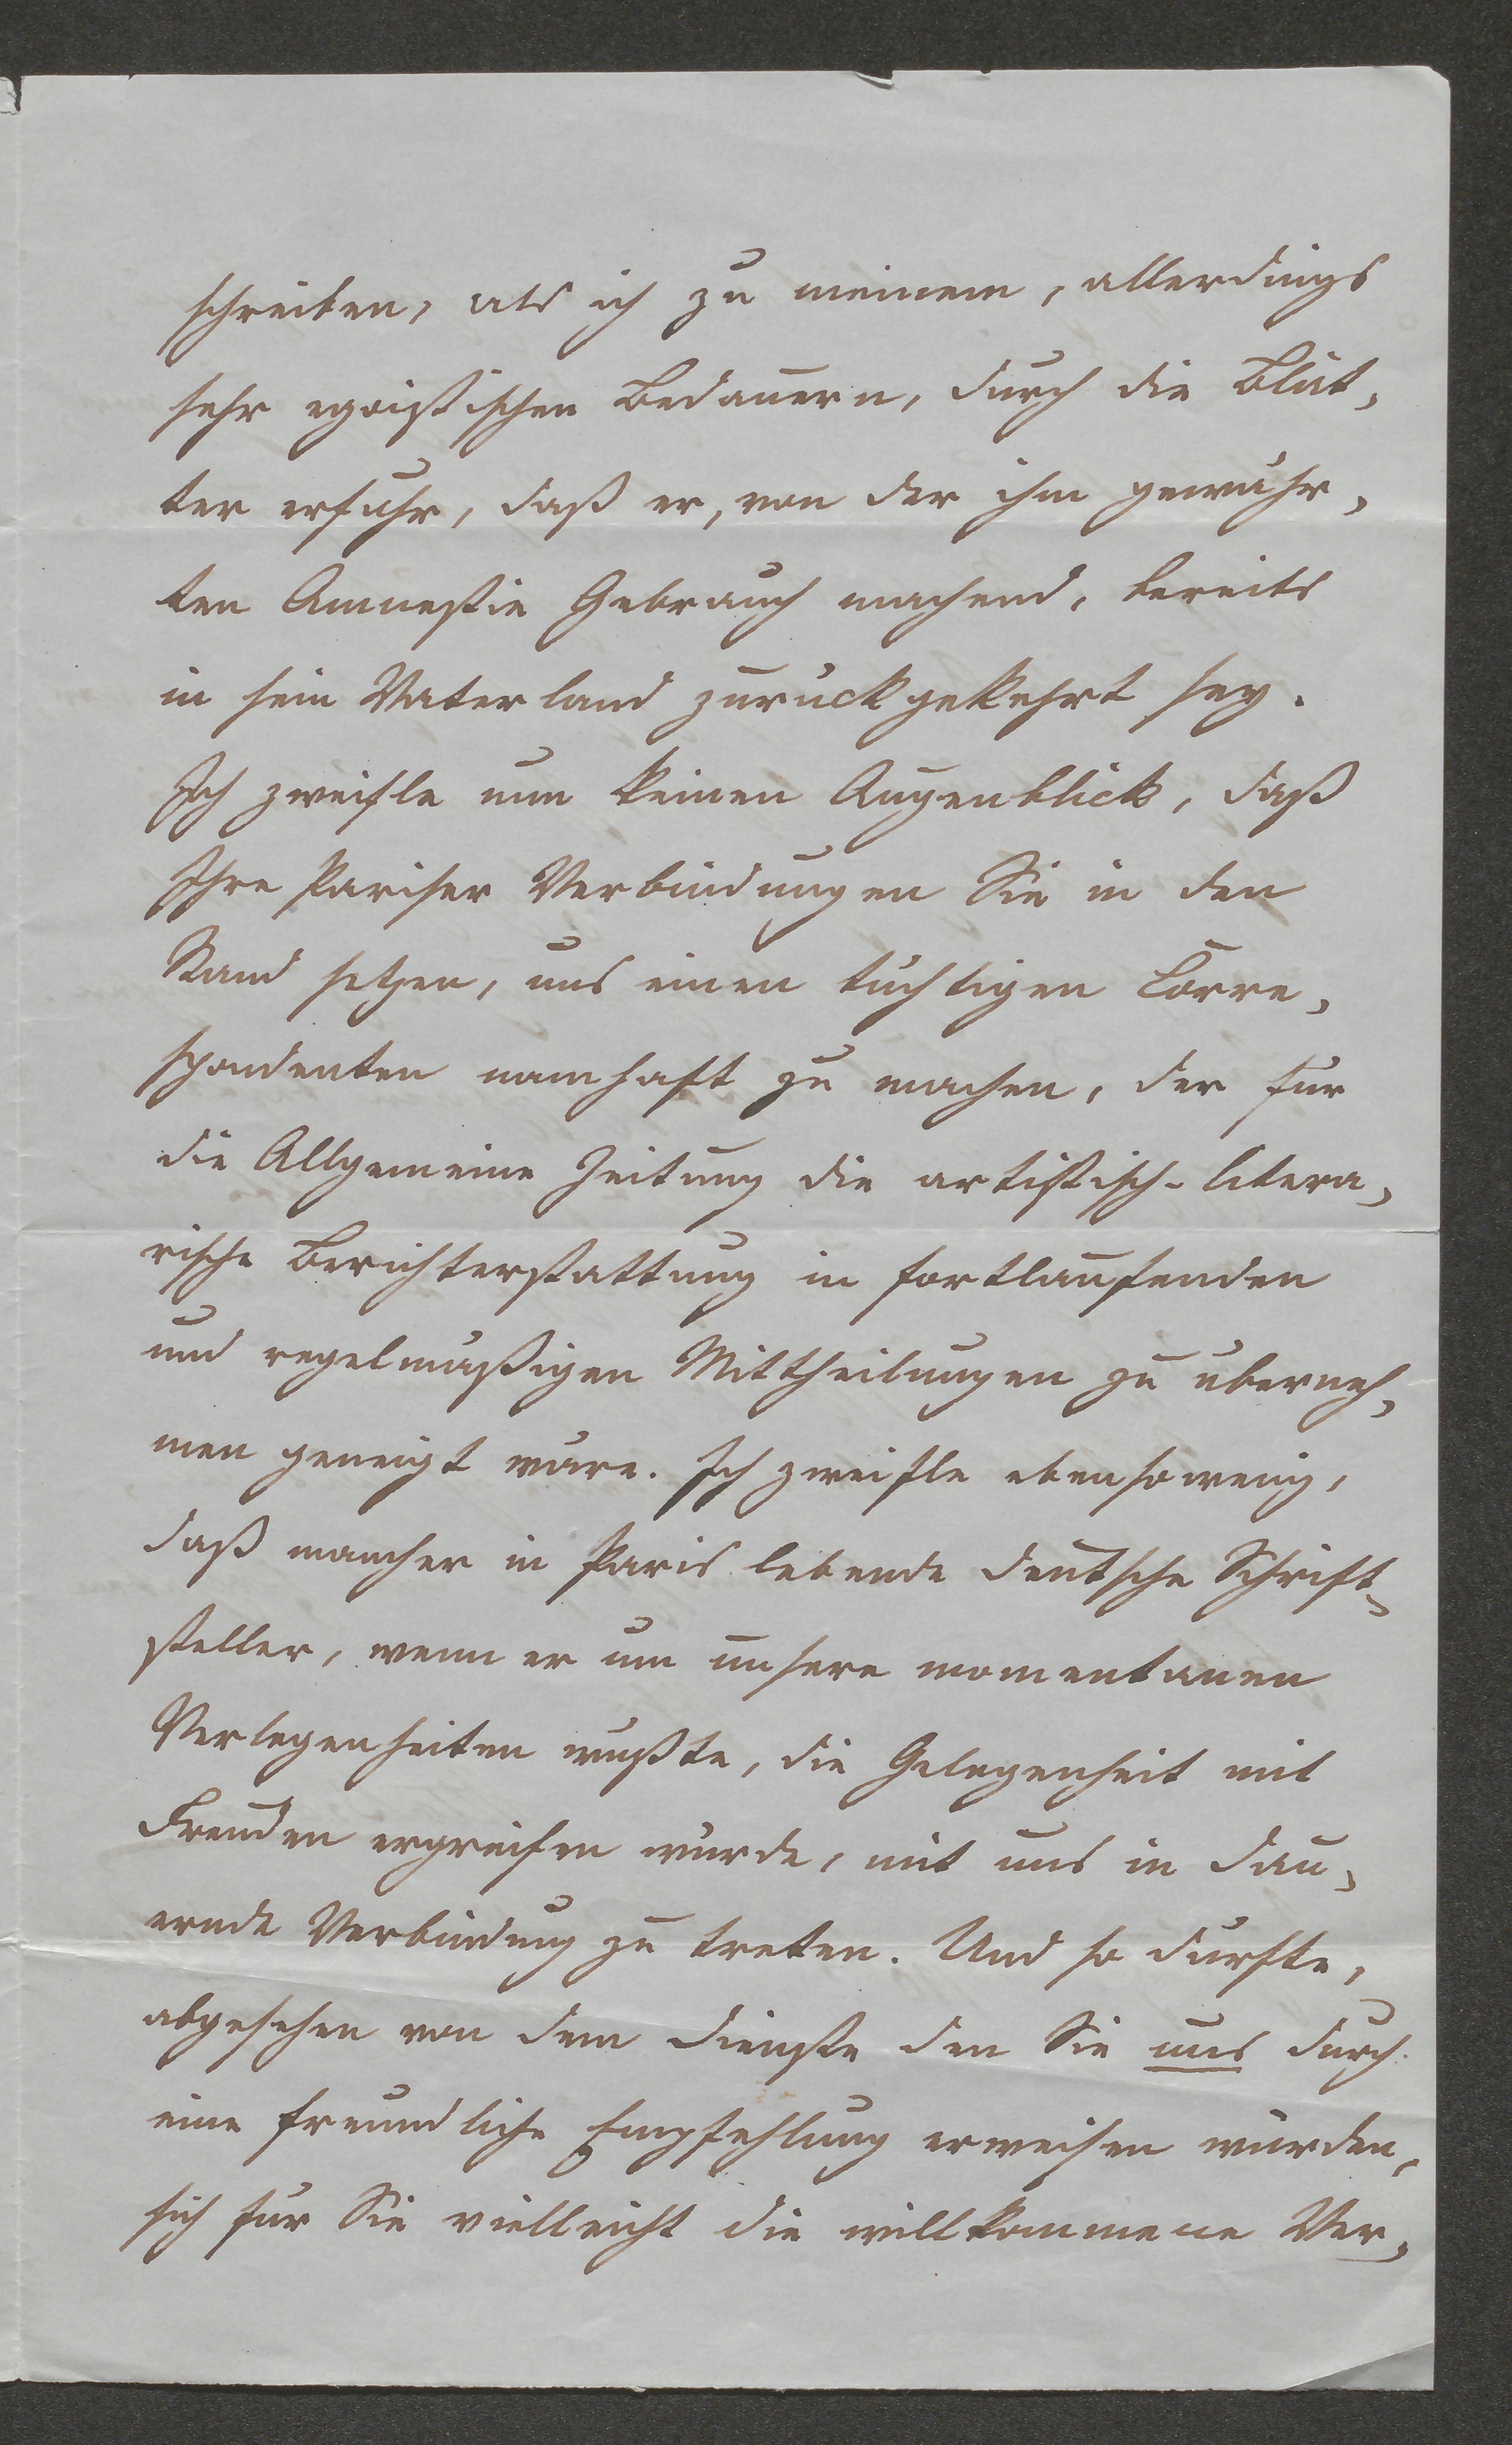 schreiben, als ich zu meinem, allerdings
sehr egoistischen Bedauern, durch die Blät-
ter erfuhr, daß er, von der ihm gewähr-
ten Amnestie Gebrauch machend, bereits
in sein Vaterland zurückgekehrt sey.
Ich zweifle nun keinen Augenblick, daß
Ihre Pariser Verbindungen Sie in den
Stand setzen, uns einen tüchtigen Corre-
spondenten namhaft zu machen, der für
die Allgemeine Zeitung die artistisch-litera-
rische Berichterstattung in fortlaufenden
und regelmäßigen Mittheilungen zu überneh-
men geneigt wäre. Ich zweifle ebensowenig,
daß mancher in Paris lebende deutsche Schrift-
steller, wenn er um unsere momentanen
Verlegenheiten wußte, die Gelegenheit mit
Freuden ergreifen würde, mit uns in dau-
ernde Verbindung zu treten. Und so dürfte,
abgesehen von dem Dienste den Sie uns durch
eine freundliche Empfehlung erweisen würden,
sich für Sie vielleicht die willkommene Ver-